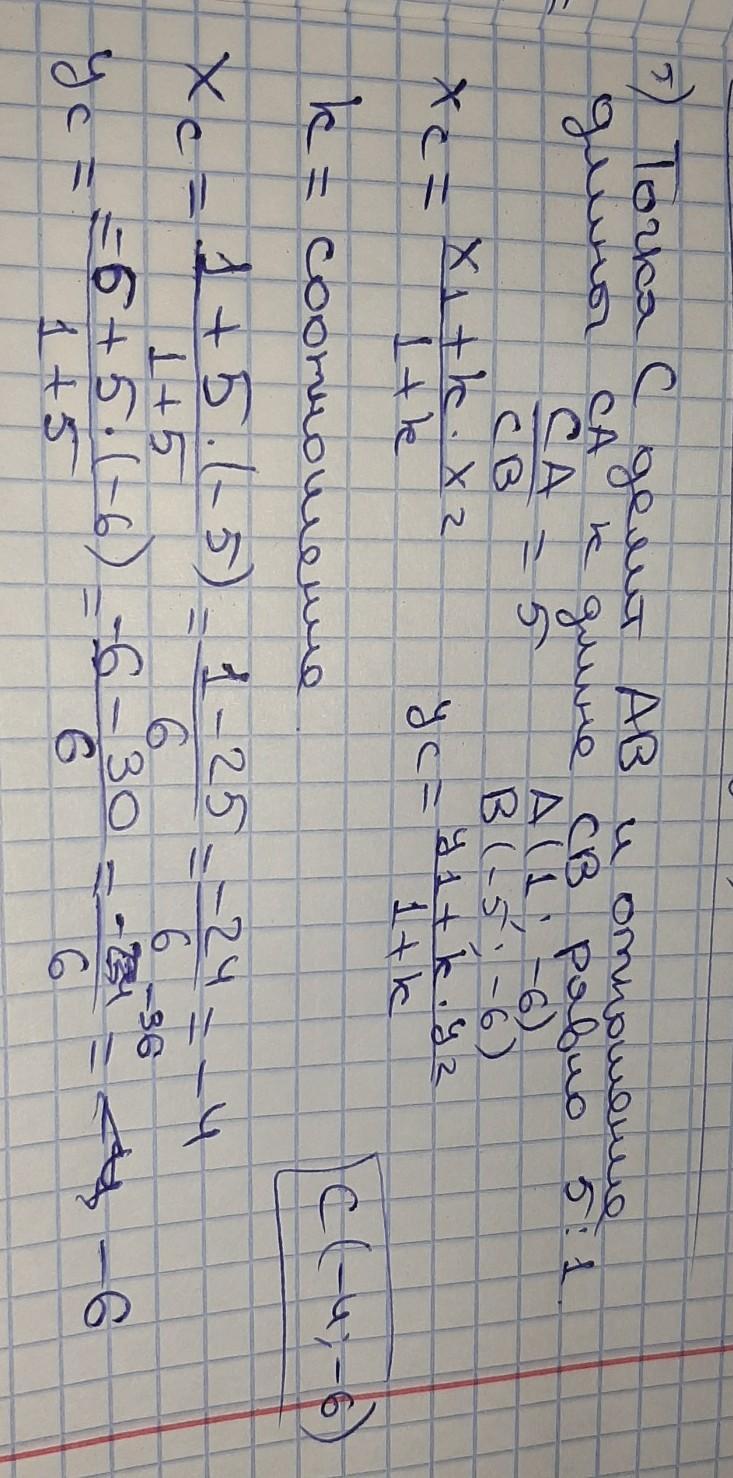 т) Точка С делит АВ и отношение
длины СА к длине СВ равно 5:1.
CA/CB = 5
A(1; -6)
B(-5; -6)
xc = (x1 + k · x2)/(1 + k)
yc = (y1 + k · y2)/(1 + k)
k = соотношение
C(-4; -6)
xc = (1 + 5 · (-5))/(1 + 5) = (1 - 25)/6 = -24/6 = -4
yc = (-6 + 5 · (-6))/(1 + 5) = (-6 - 30)/6 = -36/6 = -6